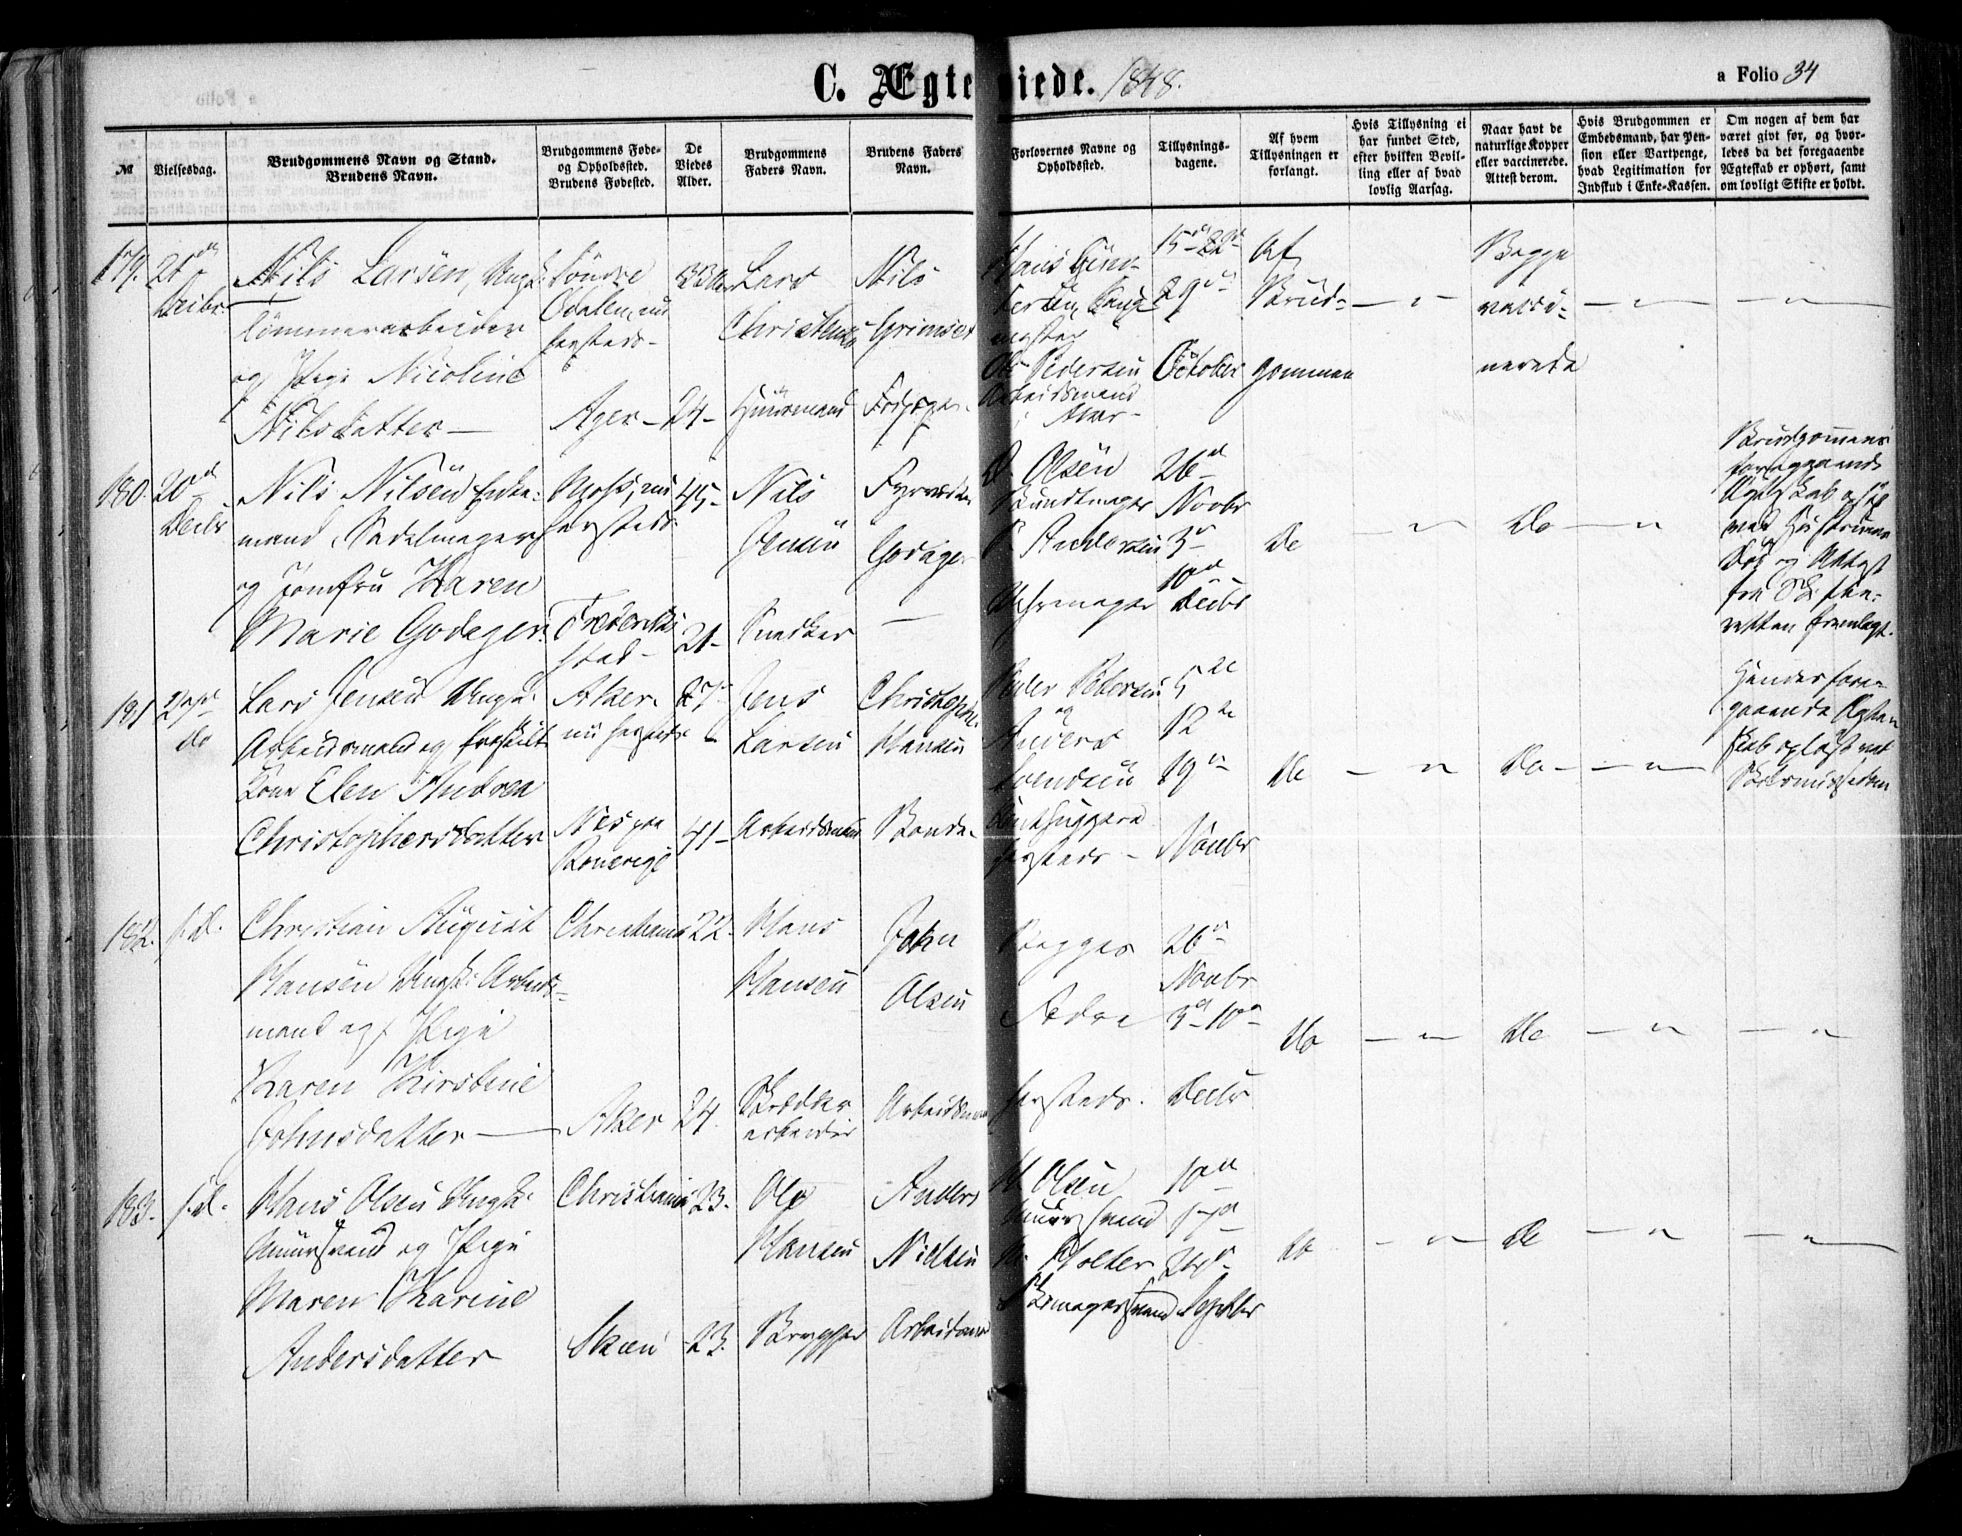 C. Ægteviede. 1848.
a Folio 34
№
Vielsesdag.
Brudgommens Navn og Stand.
Brudens Navn.
Brudgommens Føde-
og Opholdssted.
Brudens Fødested.
De
Viedes
Alder.
Brudgommens
Faders Navn.
Brudens Faders
Navn.
Forlovernes Navne og
Opholdssted.
Tillysnings-
dagene.
Af hvem
Tillysningen er
forlangt.
Hvis Tillysning ei
har fundet Sted,
efter hvilken Bevil-
ling eller af hvad
lovlig Aarsag.
Naar havt de
naturlige Kopper
eller vaccinerede.
Attest derom.
Hvis Brudgommen er
Embedsmand, har Pen-
sion eller Vartpenge,
hvad Legitimation for
Indskud i Enke-Kassen.
Om nogen af dem har
været givt før, og hvor-
ledes da det foregaaende
Ægteskab er ophørt, samt
om lovligt Skifte er holdt.
179.
Decbr
Nils Larsen, Ungk.
Tømmerarbeider
og Pige Nicoline
Nilsdatter
Søndre
Odalen, nu
hersteds
Ager
33
24
Lars
Christensen
Huusmand
Nils
Grimset
Hans
Ole Pedersen
Arbeidsmand
Aker
15de 22de
29de
October
Af
Brud-
gommen
Begge
vacci-
nerede
180.
20de
Decbr
Nils Nilsen Enke-
mand, Sadelmager
og Jomfru Karen
Marie Godager
Moss, nu
hersteds
Frederiks
stad
45
21
Nils
Jensen
Snedker
Godager
O Olsen
Buntmager
P Andersen
Uhrmager
26de
Novbr
3de
10de
Decbr
do
do
Brudgommens
foregaaende
Ægteskab opløst
ved Hustruens
Død og Attest
fra Skifte-
retten fremlagt.
181
do
Lars Jensen Ungk.
Arbeidsmand og fraskilt
Kone Elen Andrea
Christophersdatter
Aker
nu hersteds
Nes paa
Romerige
27
41
Jens
Larsen
Arbeidsmand
Christopher
Hansen
Bonde
Peder Pedersen
og
Anders
Svendsen
hersteds
5te
12te
19de
Novbr
do
do
Hendes fore-
gaaende Ægte
skab opløst ved
182.
s.d.
Christian August
Hansen Ungk. Arbeids-
mand og Pige
Karen Kirstine
Johnsdatter
Christiania
Aker
22
24
Hans
Hansen
arbeider
John
Olsen
Arbeidsmand
Begges
Fædre
hersteds
26de
Novbr
3de 10de
Decbr
do
do
183.
s.d.
Hans Olsen Ungk.
Muursvend og Pige
Maren Karine
Andersdatter
Christiania
23
23
Ole
Hansen
Brygger
Anders
Nielsen
Arbeidsmand
H Olsen
Muursvend
Holter
10de
17de
24de
Septbr
do
do